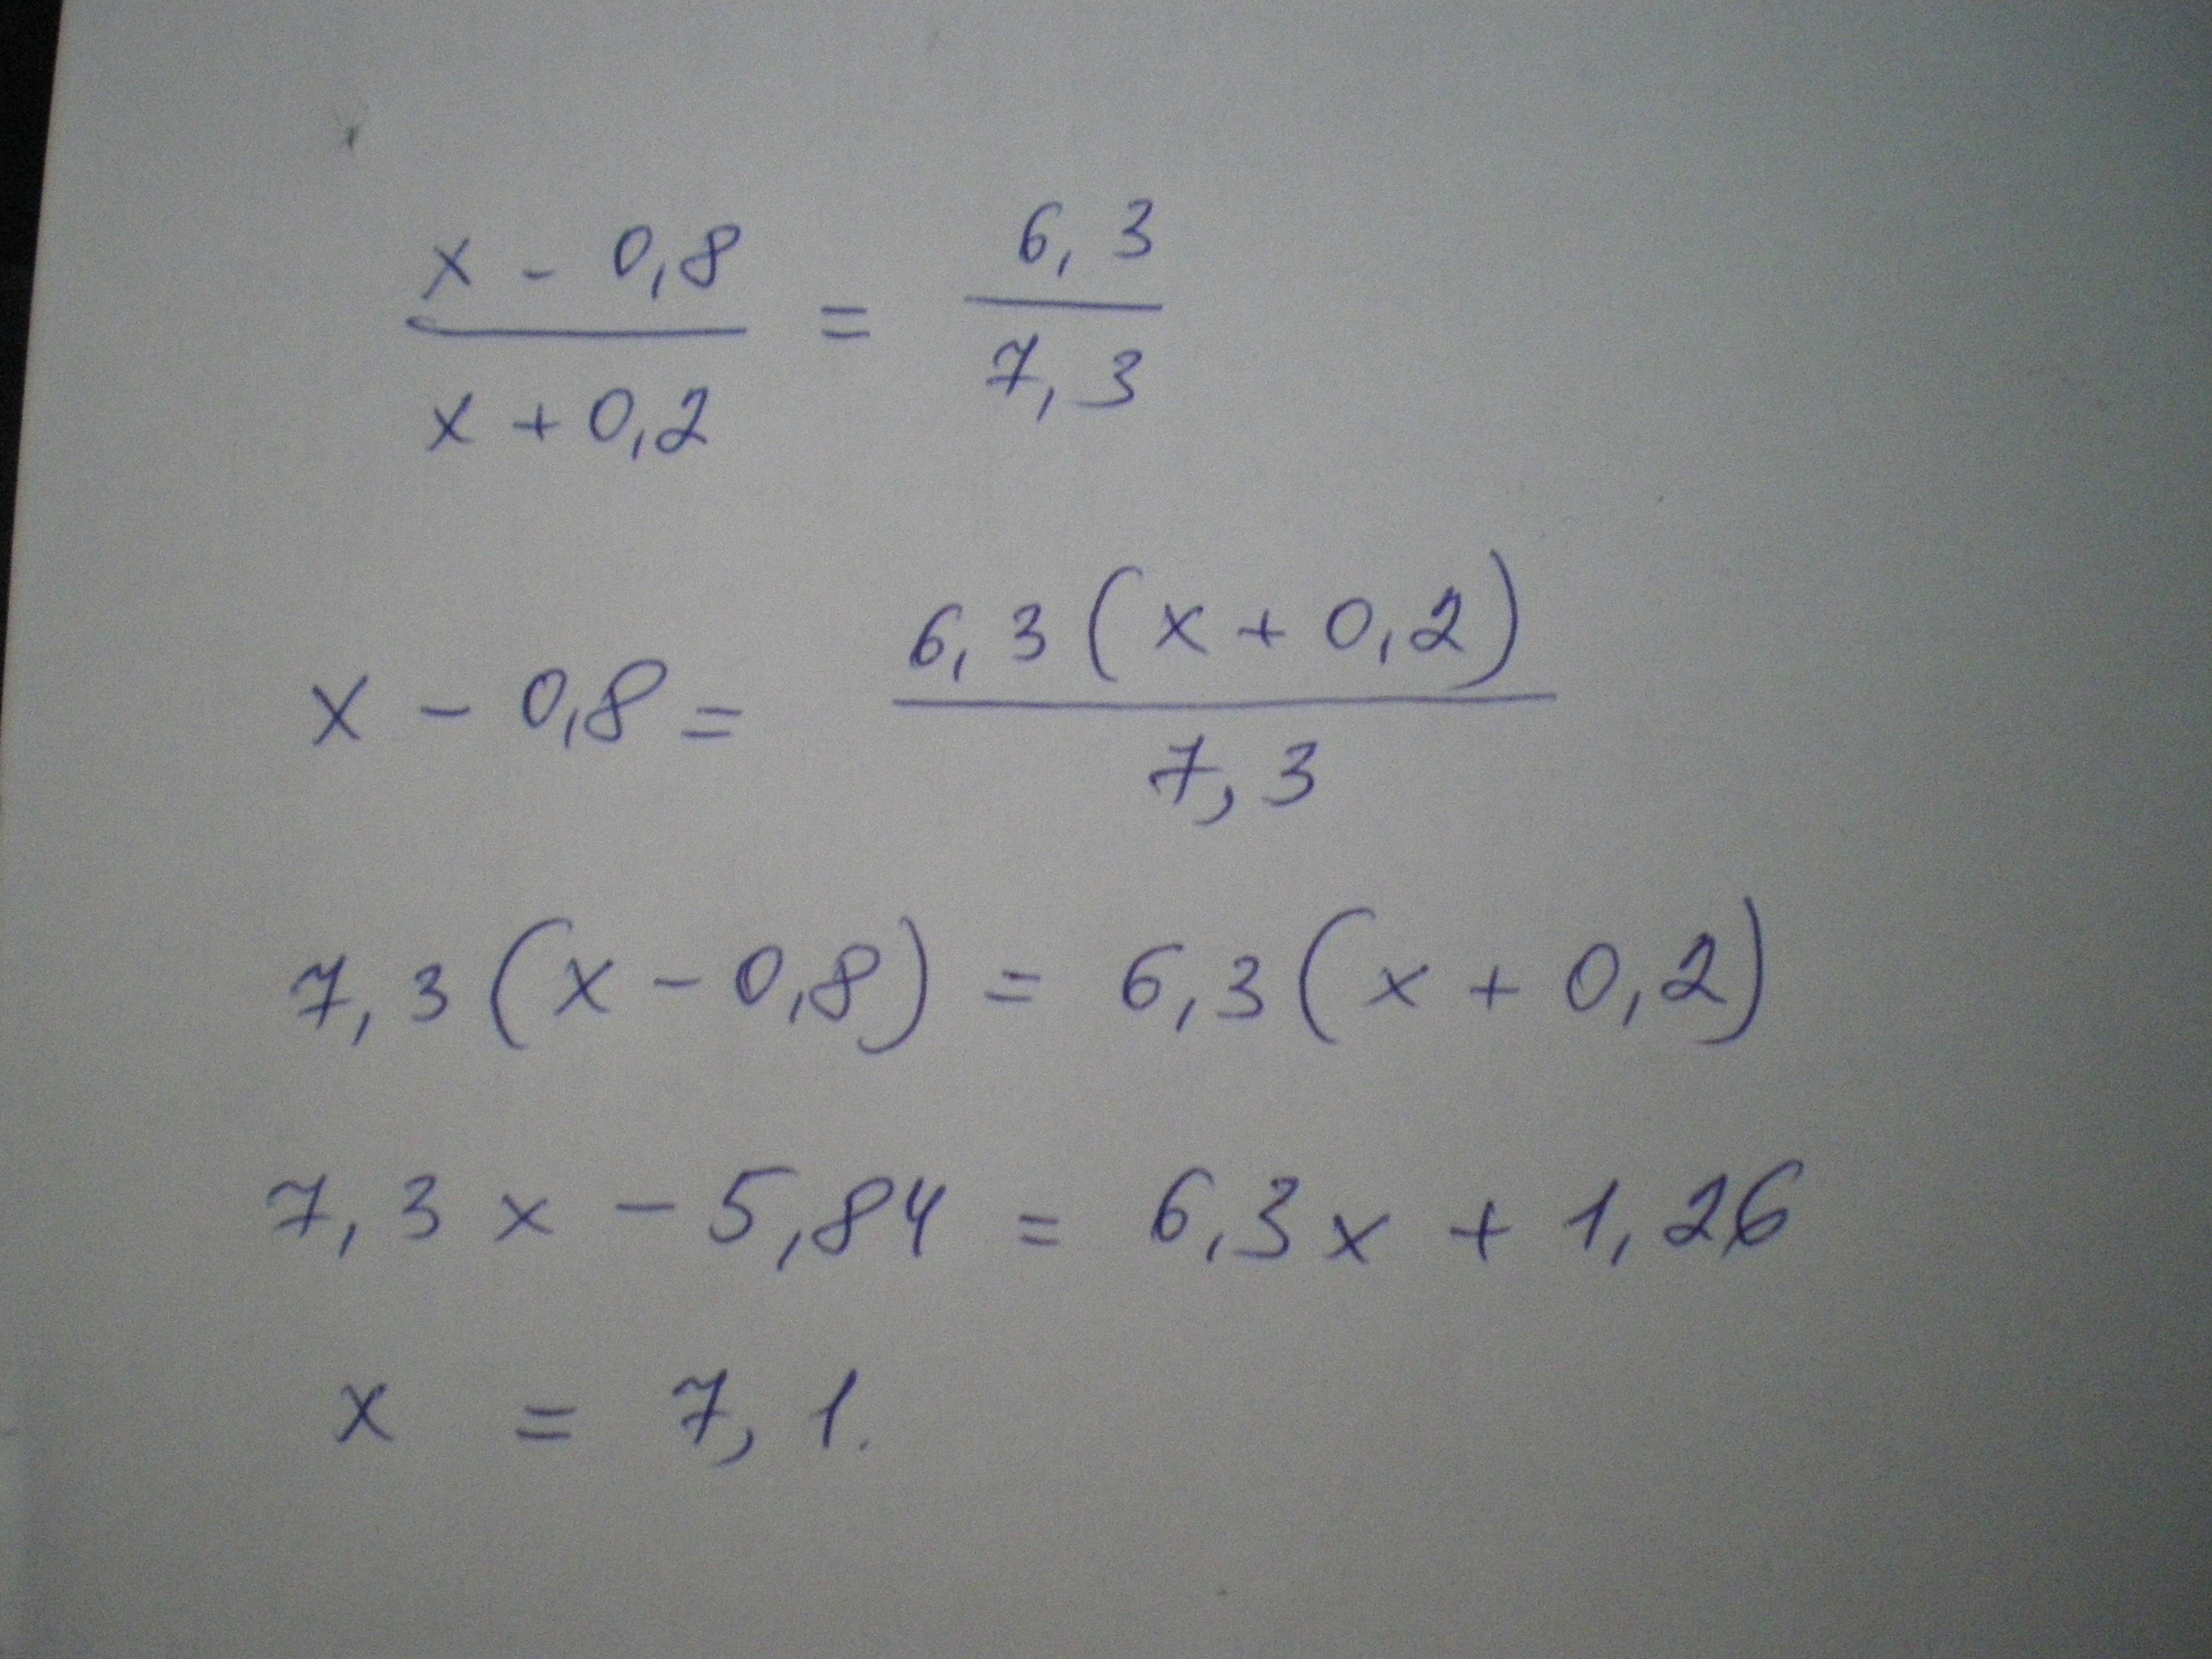 x - 0,8 / x + 0,2 = 6,3 / 7,3
x - 0,8 = 6,3(x + 0,2) / 7,3
7,3(x - 0,8) = 6,3(x + 0,2)
7,3x - 5,84 = 6,3x + 1,26
x = 7,1.